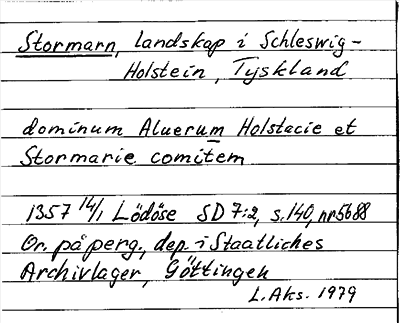 Stormarn, landskap i Schleswig-
Holstein, Tyskland
dominum Aluerum Holstacie et
Stormarie comitem
1357 14/1 Lödöse SD 7:2, s.140, nr 5688
Or. på perg., dep. i Staatliches
Archivlager, Göttingen
L. Aks. 1979